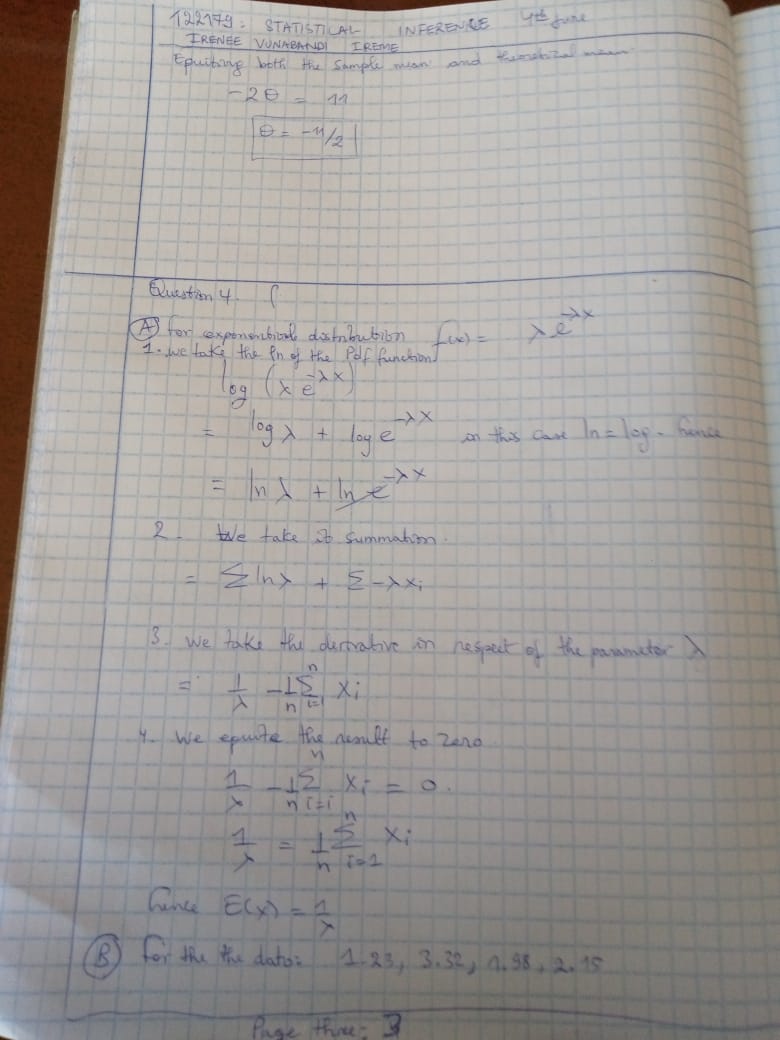 122179: STATISTICAL INFERENCE 4th June
IRENEE VUNABANDI IREME
Equiting both the sample mean and theoretical mean
-2θ = 11
θ = -11/2
Question 4.
(A) For exponential distribution f(x) = λe^-λx
1. we take the ln of the Pdf function
log (λ e^-λx)
= log λ + log e^-λx in this case ln = log. hence
= ln λ + ln e^-λx
2. We take summation.
= Σ ln λ + Σ -λxi
3. we take the derivative in respect of the parameter λ
= 1/λ - 1/n Σ_{i=1}^{n} xi
4. We equite the result to zero
1/λ - 1/n Σ_{i=i}^{n} xi = 0.
1/λ = 1/n Σ_{i=1}^{n} xi
hence E(x) = 1/λ
(B) For the the data: 1.23, 3.32, 1.98, 2.15
Page three: 3